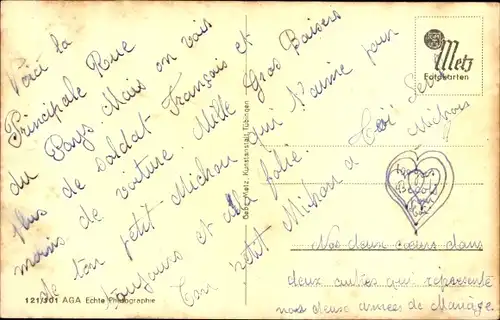 Voici la
Principale Rue
du Pays Mais on vois
plus de soldat Français et
moins de voiture Mille Gros Baisers
de ton petit Michou qui t'aime pour
toujours et a la folie
Ton petit Michou a toi
Nos deux cœurs dans
deux autres qui représente
nos deux année de Mariage.
Metz
Fotokarten
Gebr. Metz, Kunstanstalt, Tübingen
121/301 AGA Echte Photographie